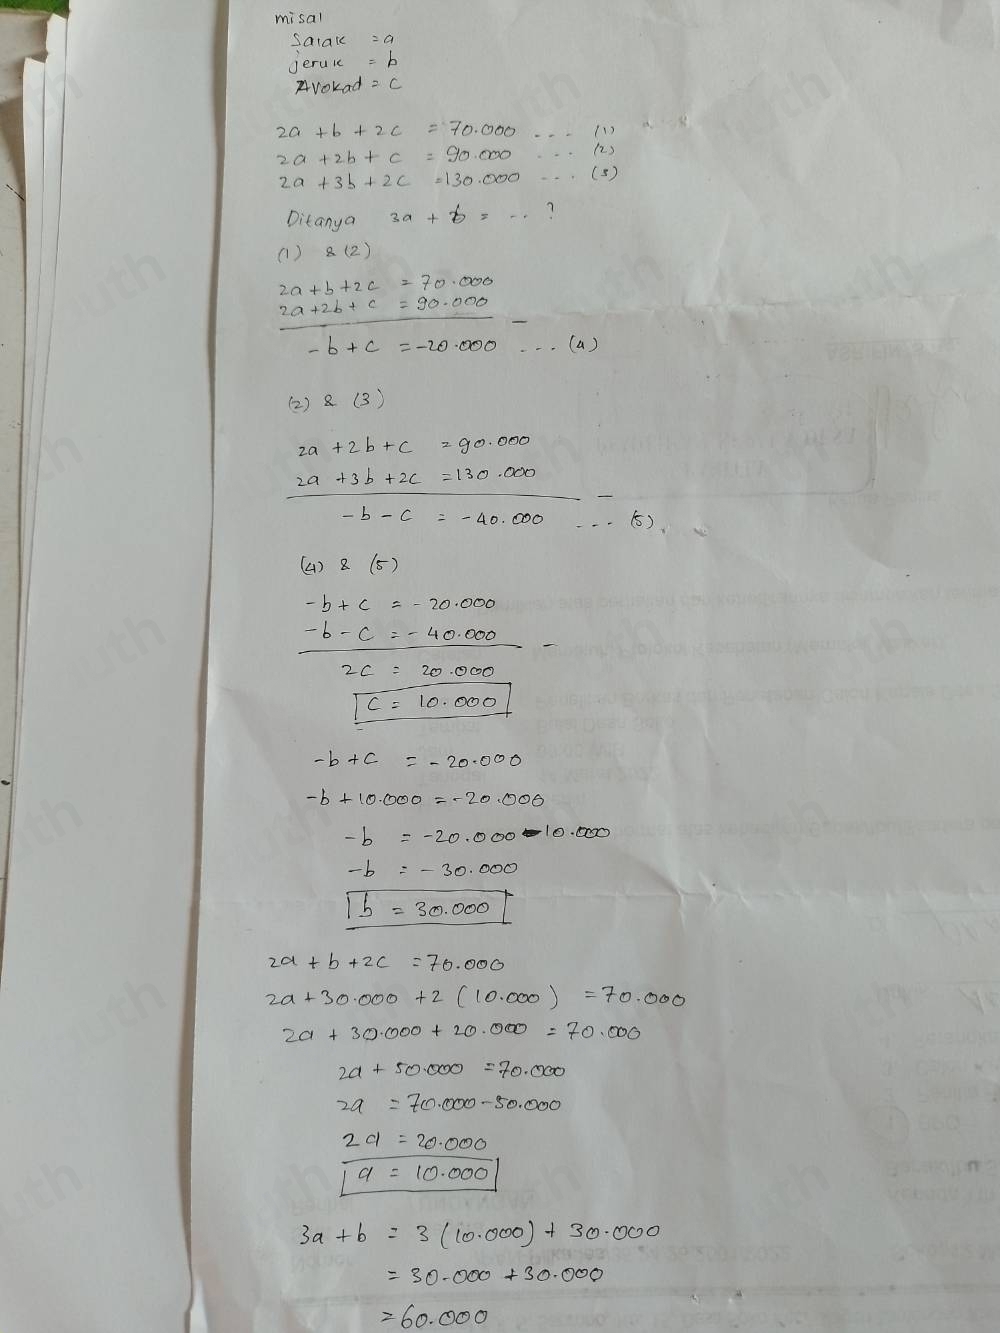 misal
Salak = a
jeruk = b
Avokad = c
2a + b + 2c = 70.000 ... (1)
2a + 2b + c = 90.000 ... (2)
2a + 3b + 2c = 130.000 ... (3)
Ditanya 3a + b = ... ?
(1) & (2)
2a + b + 2c = 70.000
2a + 2b + c = 90.000 -
-b + c = -20.000 ... (4)
(2) & (3)
2a + 2b + c = 90.000
2a + 3b + 2c = 130.000 -
-b - c = -40.000 ... (5)
(4) & (5)
-b + c = -20.000
-b - c = -40.000 -
2c = 20.000
c = 10.000
-b + c = -20.000
-b + 10.000 = -20.000
-b = -20.000 - 10.000
-b = -30.000
b = 30.000
2a + b + 2c = 70.000
2a + 30.000 + 2 (10.000) = 70.000
2a + 30.000 + 20.000 = 70.000
2a + 50.000 = 70.000
2a = 70.000 - 50.000
2a = 20.000
a = 10.000
3a + b = 3 (10.000) + 30.000
= 30.000 + 30.000
= 60.000